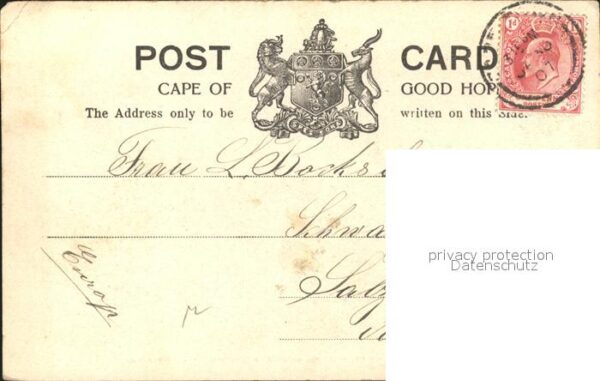 POST CARD
CAPE OF GOOD HOP
The Address only to be written on this Side.
1d
07
Frau L. Bocks
Schwa
Salz
Europ
privacy protection
Datenschutz